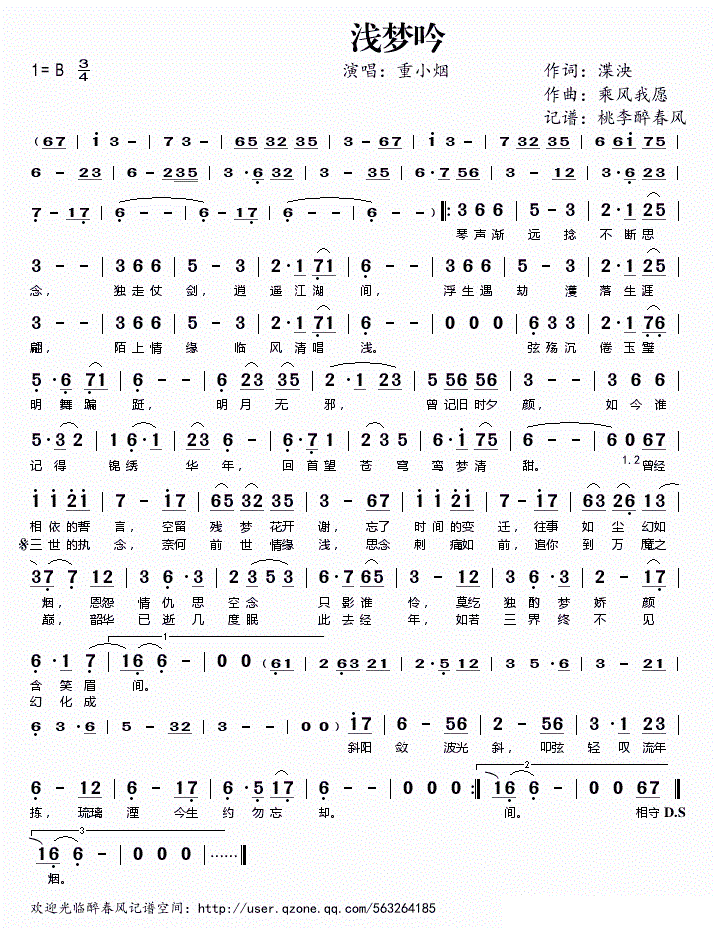 浅梦吟
1=B 3/4 演唱：重小烟 作词：渫泱
作曲：乘风我愿
记谱：桃李醉春风
（67 | i 3 - | 7 3 - | 65 32 35 | 3 - i | 3 - - | 7 32 35 | 6 6i 75 |
6 - 23 | 6 - 235 | 3 · 6 32 | 3 - 35 | 6 · 7 56 | 3 - 12 | 3 · 6 23 |
7 - 17 | 6 - - | 6 - 17 | 6 - - | 6 - - ）‖: 3 6 6 | 5 - 3 | 2 · 1 25 |
琴声渐 远捻 不断思
3 - - | 3 6 6 | 5 - 3 | 2 · 1 71 | 6 - - | 3 6 6 | 5 - 3 | 2 · 1 25 |
念， 独走仗 剑，逍 遥江湖 间， 浮生遇 劫 濩 落生涯
3 - - | 3 6 6 | 5 - 3 | 2 · 1 71 | 6 - - | 0 0 0 | 6 3 3 | 2 · 1 76 |
翩， 陌上情 缘 临 风清唱 浅。 弦殇沉 倦玉璧
5 · 6 71 | 6 - - | 6 23 35 | 2 · 1 23 | 6 - 56 | 3 - - | 3 6 6 |
明舞蹁 跹， 明月无 邪， 曾记旧时夕 颜， 如今谁
5 · 3 2 | 1 6 · 1 | 23 6 - | 6 · 7 1 | 2 3 5 | 6 · i 75 | 6 - - | 6 0 67 |
记得 锦绣 华年， 回首望 苍穹 鸾梦清 甜。 1.2 曾经
i i 2i | 7 - i7 | 65 32 35 | 3 - 67 | i i 2i | 7 - i7 | 63 23 26 | 13 -
相依的誓 言，空留 残梦花开 谢，忘了 时间的变 迁，往事 如尘幻如
𝄋三世的执 念，奈何 前世情缘 浅，思念 刺痛如 前，追你 到万魔之
37 7 12 | 3 6 · 3 | 2 35 3 | 6 · 7 65 | 3 - 12 | 3 6 · 3 | 2 - 17 |
烟， 恩怨 情仇思 空念 只影谁 怜，莫纥 独酌梦 娇颜
巅， 韶华 已逝几 度眠 此去经 年，如若 三界终 不见
1
6 · 1 7 | 16 6 - | 0 0 （61 | 2 63 21 | 2 · 5 12 | 3 5 · 6 | 3 - 21 |
含笑眉 间。
幻化成
6 3 · 6 | 5 - 32 | 3 - - | 0 0 ）17 | 6 - 56 | 2 - 56 | 3 · 1 23 |
斜阳 敛 波光 斜，叩弦 轻叹流年
2
6 - 12 | 6 - 17 | 6 · 5 17 | 6 - - | 0 0 0 :‖ 16 6 - | 0 0 0 | 0 0 67 ‖
拣，琉璃 湮 今生 约勿忘 却。 间。 相守 D.S
3
16 6 - | 0 0 0 | …… ‖
烟。
欢迎光临醉春风记谱空间：http://user.qzone.qq.com/563264185